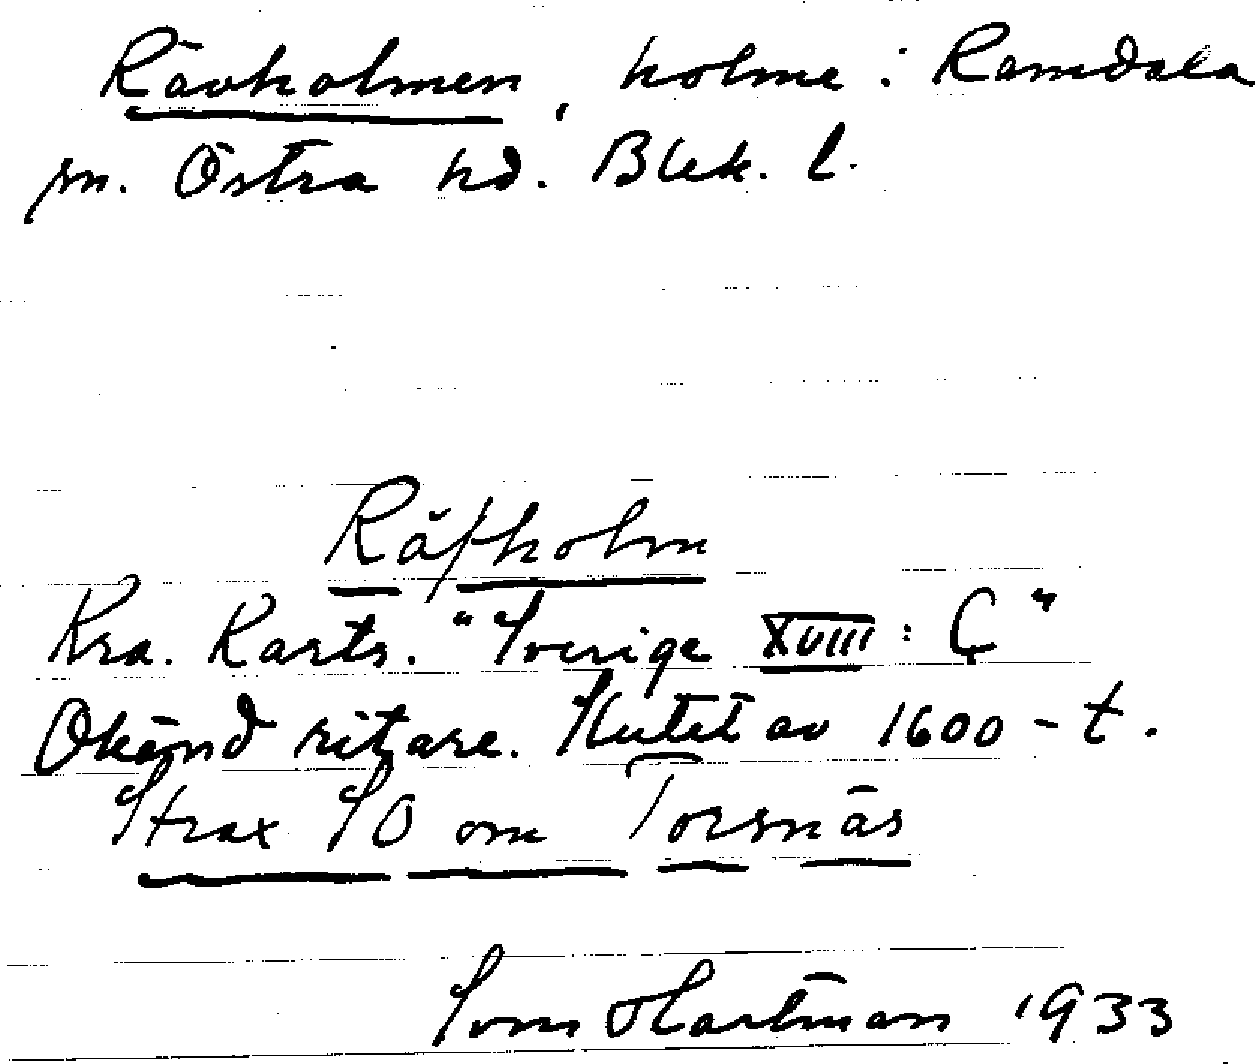 Rävholmen, holme i Ramdala
sn. Östra hd. Blek. l.
Räfholm
Kra. Karts. "Sverige XVIII: C"
Okänd ritare. Slutet av 1600-t.
Strax SO om Torsnäs
Sven Hartman 1933